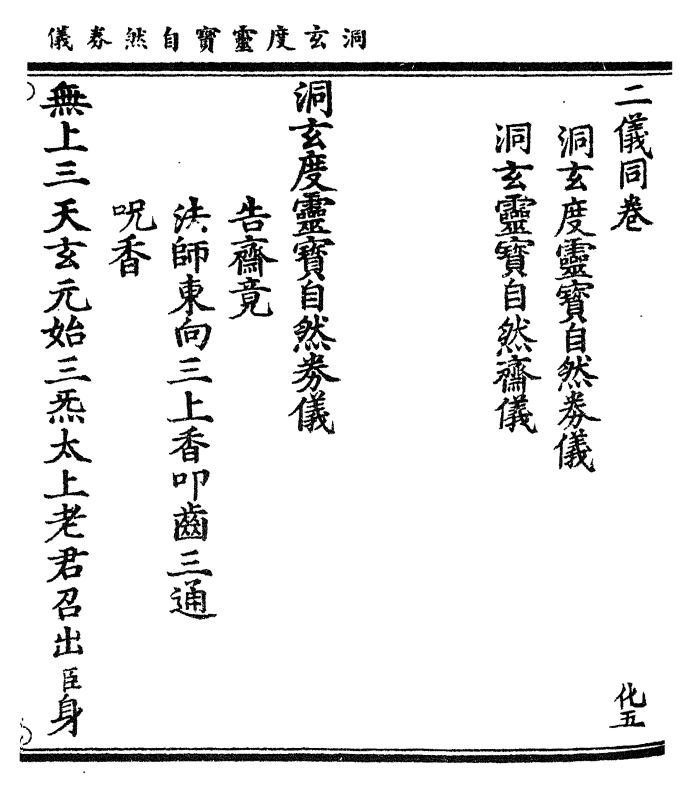 洞玄度靈寶自然券儀
二儀同卷
化五
洞玄度靈寶自然券儀
洞玄靈寶自然齋儀
洞玄度靈寶自然券儀
告齋竟
法師東向三上香叩齒三通
呪香
無上三天玄元始三炁太上老君召出臣身